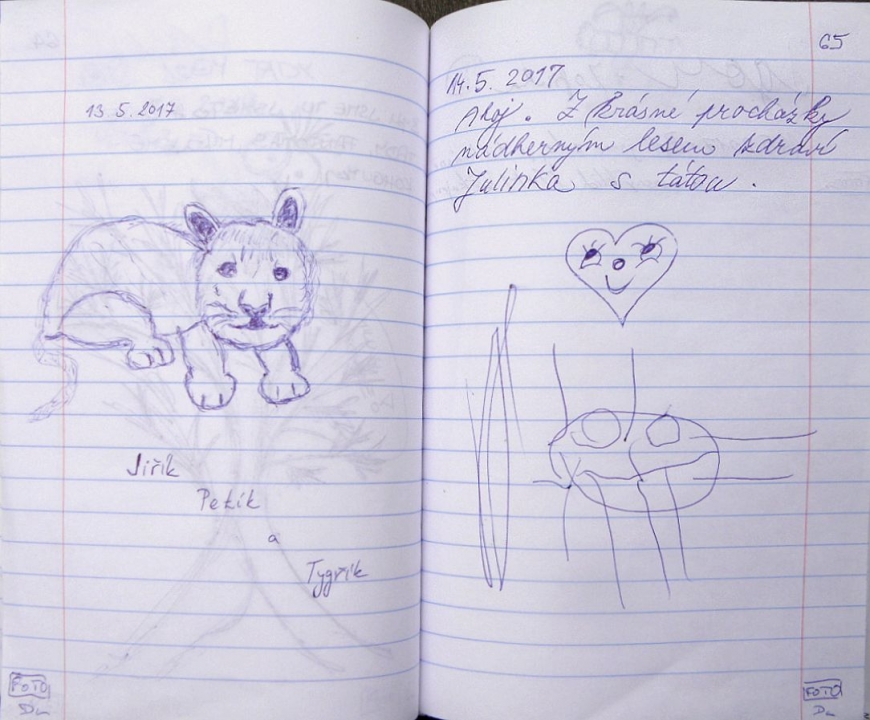 13 5. 2017
Jiřík
Petík
a
Tygřík
FOTO
65
14. 5. 2017
Ahoj. Z krásné procházky
nádherným lesem zdraví
Julinka s tátou.
FOTO